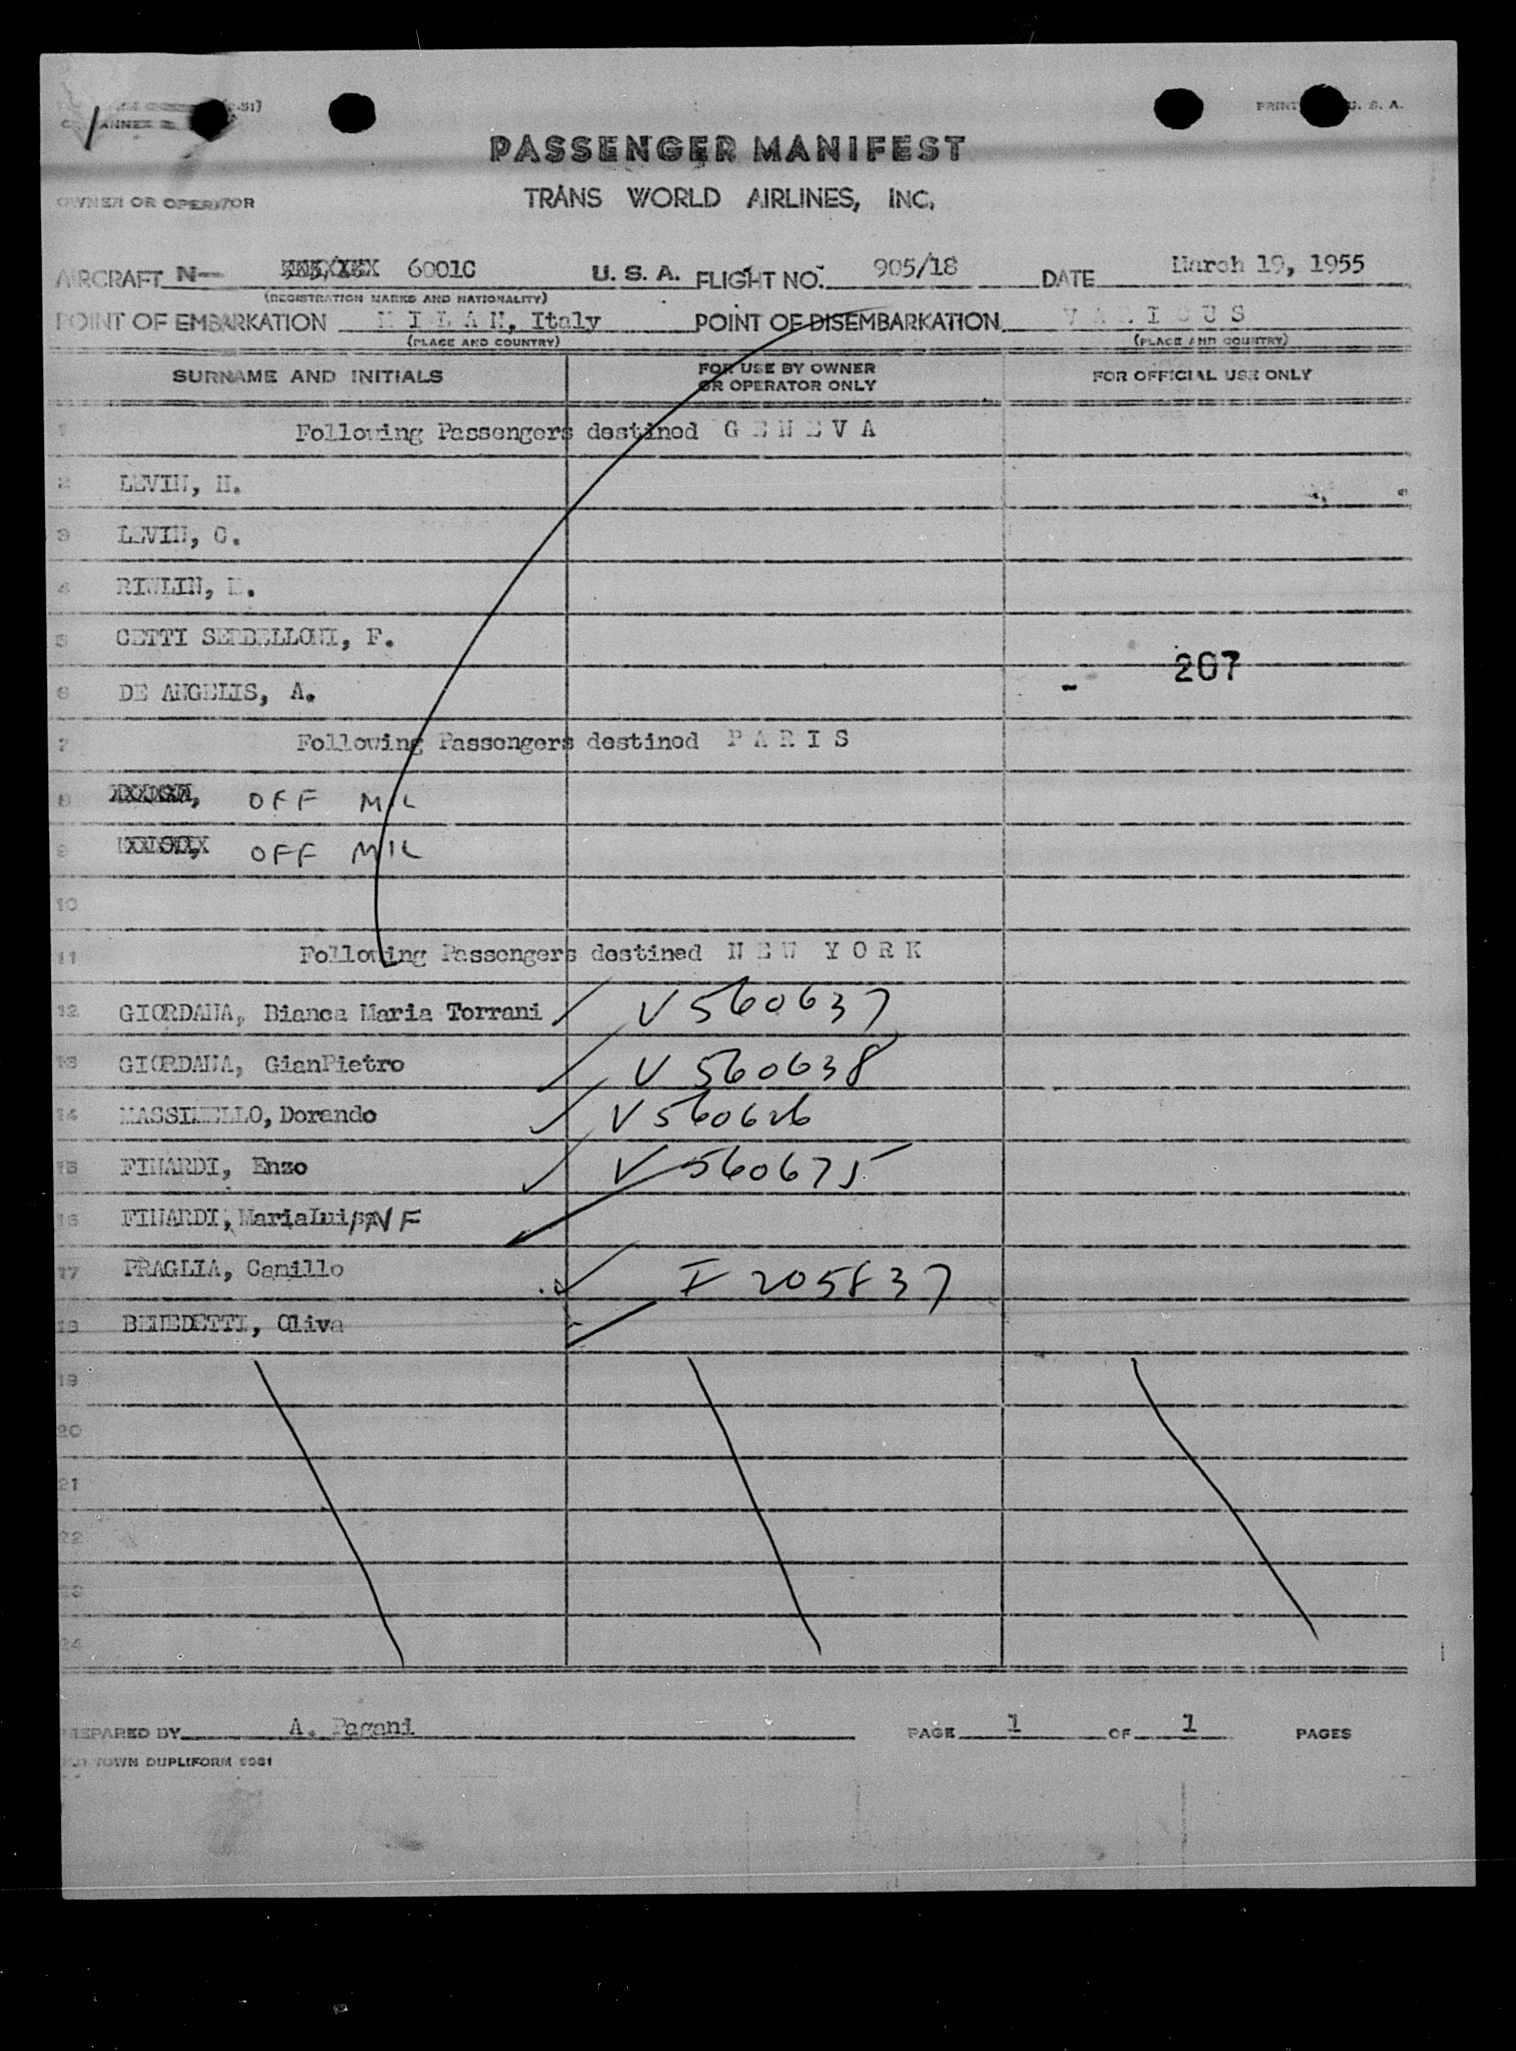 PRINT U. S. A.
ANNEX
PASSENGER MANIFEST
OWNER OR OPERATOR TRANS WORLD AIRLINES, INC.
AIRCRAFT N- 6001C U. S. A. FLIGHT NO. 905/18 DATE March 19, 1955
(REGISTRATION MARKS AND NATIONALITY)
POINT OF EMBARKATION M I L A N, Italy POINT OF DISEMBARKATION V A R I O U S
(PLACE AND COUNTRY) (PLACE AND COUNTRY)
SURNAME AND INITIALS FOR USE BY OWNER OR OPERATOR ONLY FOR OFFICIAL USE ONLY
1 Following Passengers destined G E N E V A
2 LEVIN, H.
3 LEVIN, C.
4 RIVLIN,
5 CETTI SERBELLONI, F.
207
6 DE ANGELIS, A.
7 Following Passengers destined P A R I S
8 OFF MIL
9 OFF MIL
10
11 Following Passengers destined N E W Y O R K
12 GIORDANA, Bianca Maria Torrani V 560637
13 GIORDANA, GianPietro V 560638
14 MASSINELLO, Dorando V 560626
15 FINARDI, Enzo V 560675
16 FINARDI, MariaLuisa INF
17 PRAGLIA, Camillo I 205837
18 BENEDETTI, Oliva
19
20
21
22
23
24
PREPARED BY A. Pagani PAGE 1 OF 1 PAGES
TOWN DUPLIFORM